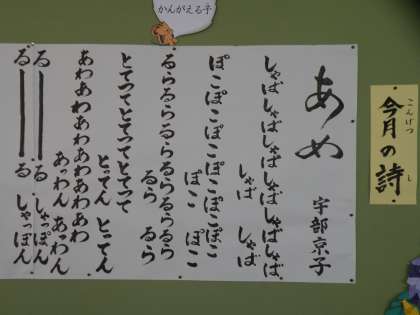 かんがえる子
こんげつ
今月の詩
し
あめ
宇部京子
しゃばしゃばしゃばしゃばしゃば
しゃば しゃば
ぽこぽこぽこぽこぽこ
ぽこ ぽこ
るらるらるらるらるら
るら るら
とてってとてってとてって
とってん とってん
あわあわあわあわあわ
あっわん あっわん
る――る しゃっぽん
る――る しゃっぽん